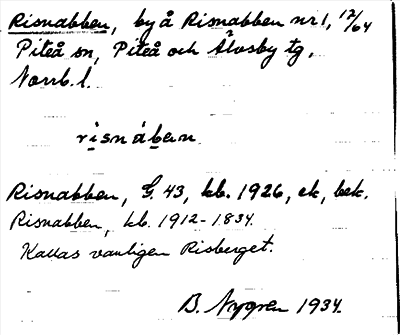 Risnabben, by å Risnabben nr 1, 12/64
Piteå sn, Piteå och Älvsby tg,
Norrb. l.
risnában
Risnabben, G. 43, kb. 1926, ek, bek.
Risnabben, kb. 1912-1834.
Kallas vanligen Risberget.
B. Nygren 1934.